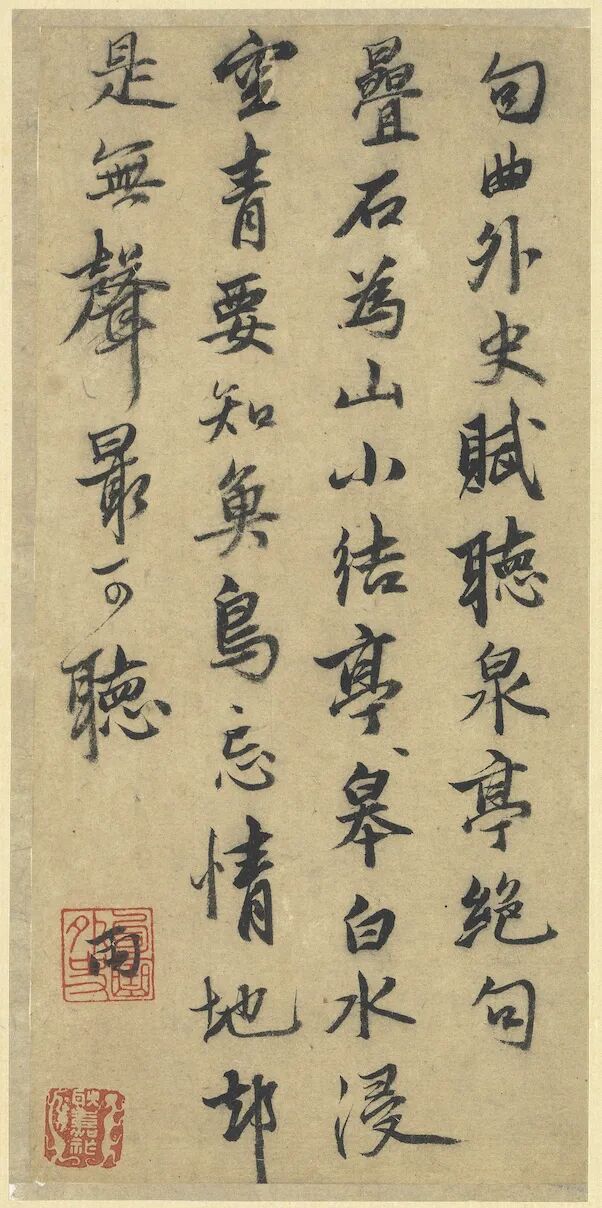 句曲外史賦聽泉亭絕句
疊石為山小結亭皋白水浸
空青要知魚鳥忘情地却
是無聲最可聽
雨
句曲外史